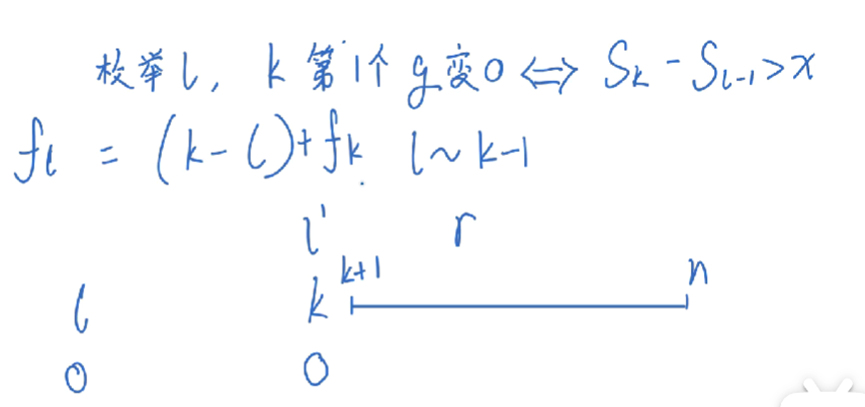 枚举l, k 第1个 g变0 ⟺ S_k - S_{l-1} > x
f_l = (k-l)+f_k l~k-1
l' r
k+1 n
l k
0 0